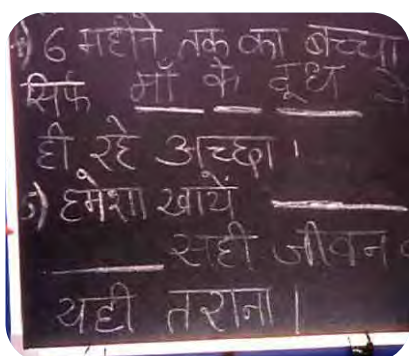 4) 6 महीने तक का बच्चा
सिर्फ माँ के दूध से
ही रहे अच्छा।
5) हमेशा खायें ______
______ सही जीवन
यही तराना।